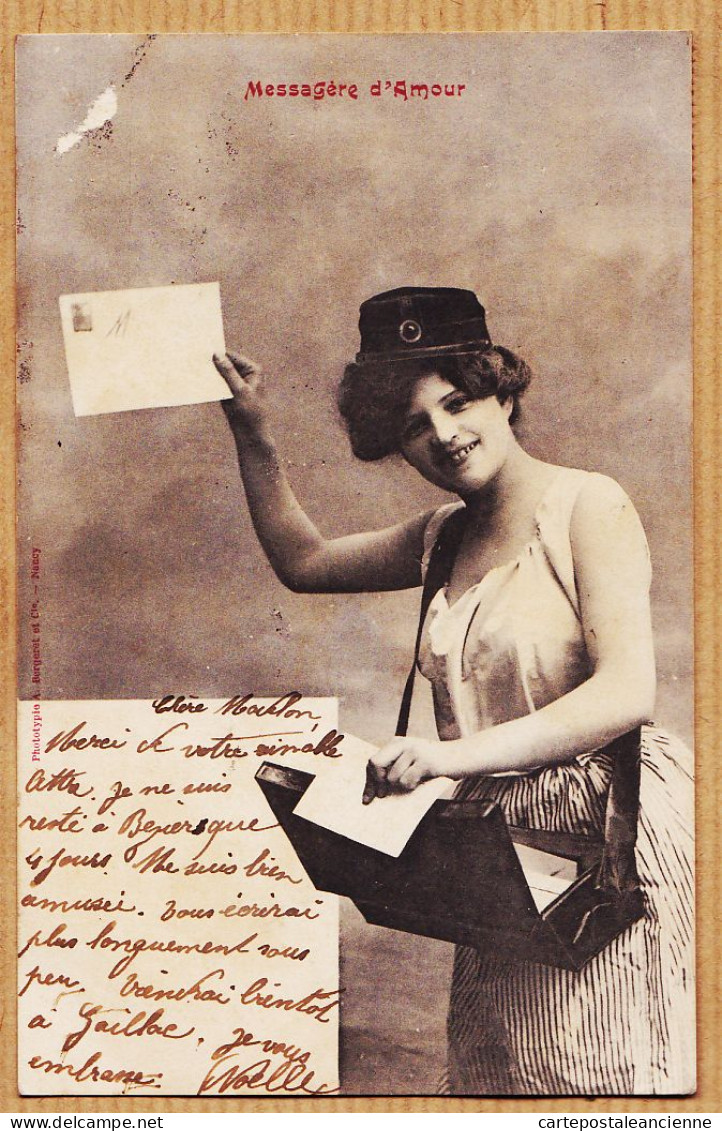 Messagère d'Amour
M
Phototypie A. Bergeret et Cie. — Nancy
Chère
Merci de votre aimable
je ne suis
resté à Béziers que
4 jours. Me suis bien
amusée. Vous écrirai
plus longuement sous
peu. Viendrai bientot
à Gaillac. je vous
embrasse.
Noëlle
cartepostaleancienne